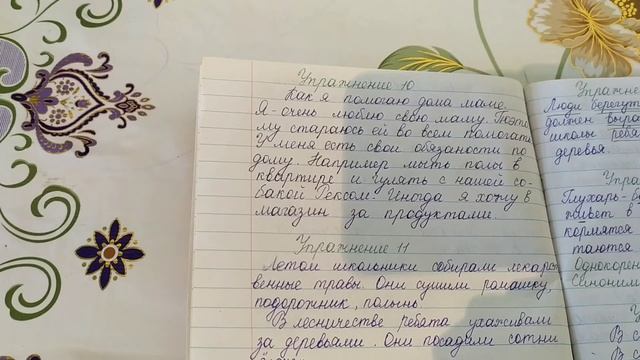 Упражнение 10
Как я помогаю дома маме.
Я - очень люблю свою маму. Поэто
му стараюсь ей во всем помогать
У меня есть свои обязаности по
дому. Например мыть полы в
квыртире и гулять с нашей со-
бакой Рексом. Иногда я хожу в
магазин за продуктами.
Упражнение 11
Летом школьники собирали лекарс
венные травы. Они сушили ромашку,
подорожник, полынь.
В лесничестве ребята ухаживали
за деревьями. Они посадили сотни
Люди берегут
должен
школы
деревья.
Глухарь -
живет в
кормятся
таются
Однокорен
Синоним
В с
В